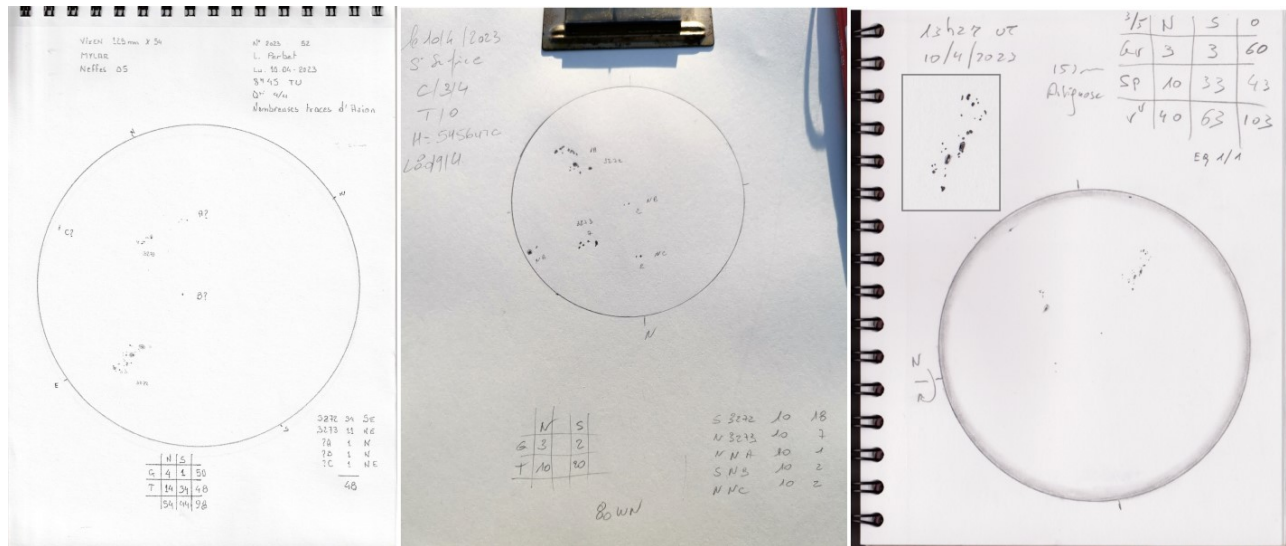 VIXEN
MYLAR
Neffes 05
N° 2023 52
L. Parbet
Lu. 10.04-2023
8h45 TU
Nombreuses traces d'Avion
N
A?
C?
3273
B?
E
3272
S
3272 34 SE
3273 11 NE
?A 1 N
?B 1 N
?C 1 NE
48
N S
G 4 1 50
T 14 34 48
54 44 98
le 10/4/2023
C/3/4
T/0
3272
NB
C
3273
NA
NC
N
N S
G 3 2
T 10 20
80 WN
S 3272 10 18
N 3273 10 7
N NA 10 1
S NB 10 2
N NC 10 2
13h27 UT
10/4/2023
3/5 N S
Gr 3 3 60
Sp 10 33 43
40 63 103
EQ 1/1
N